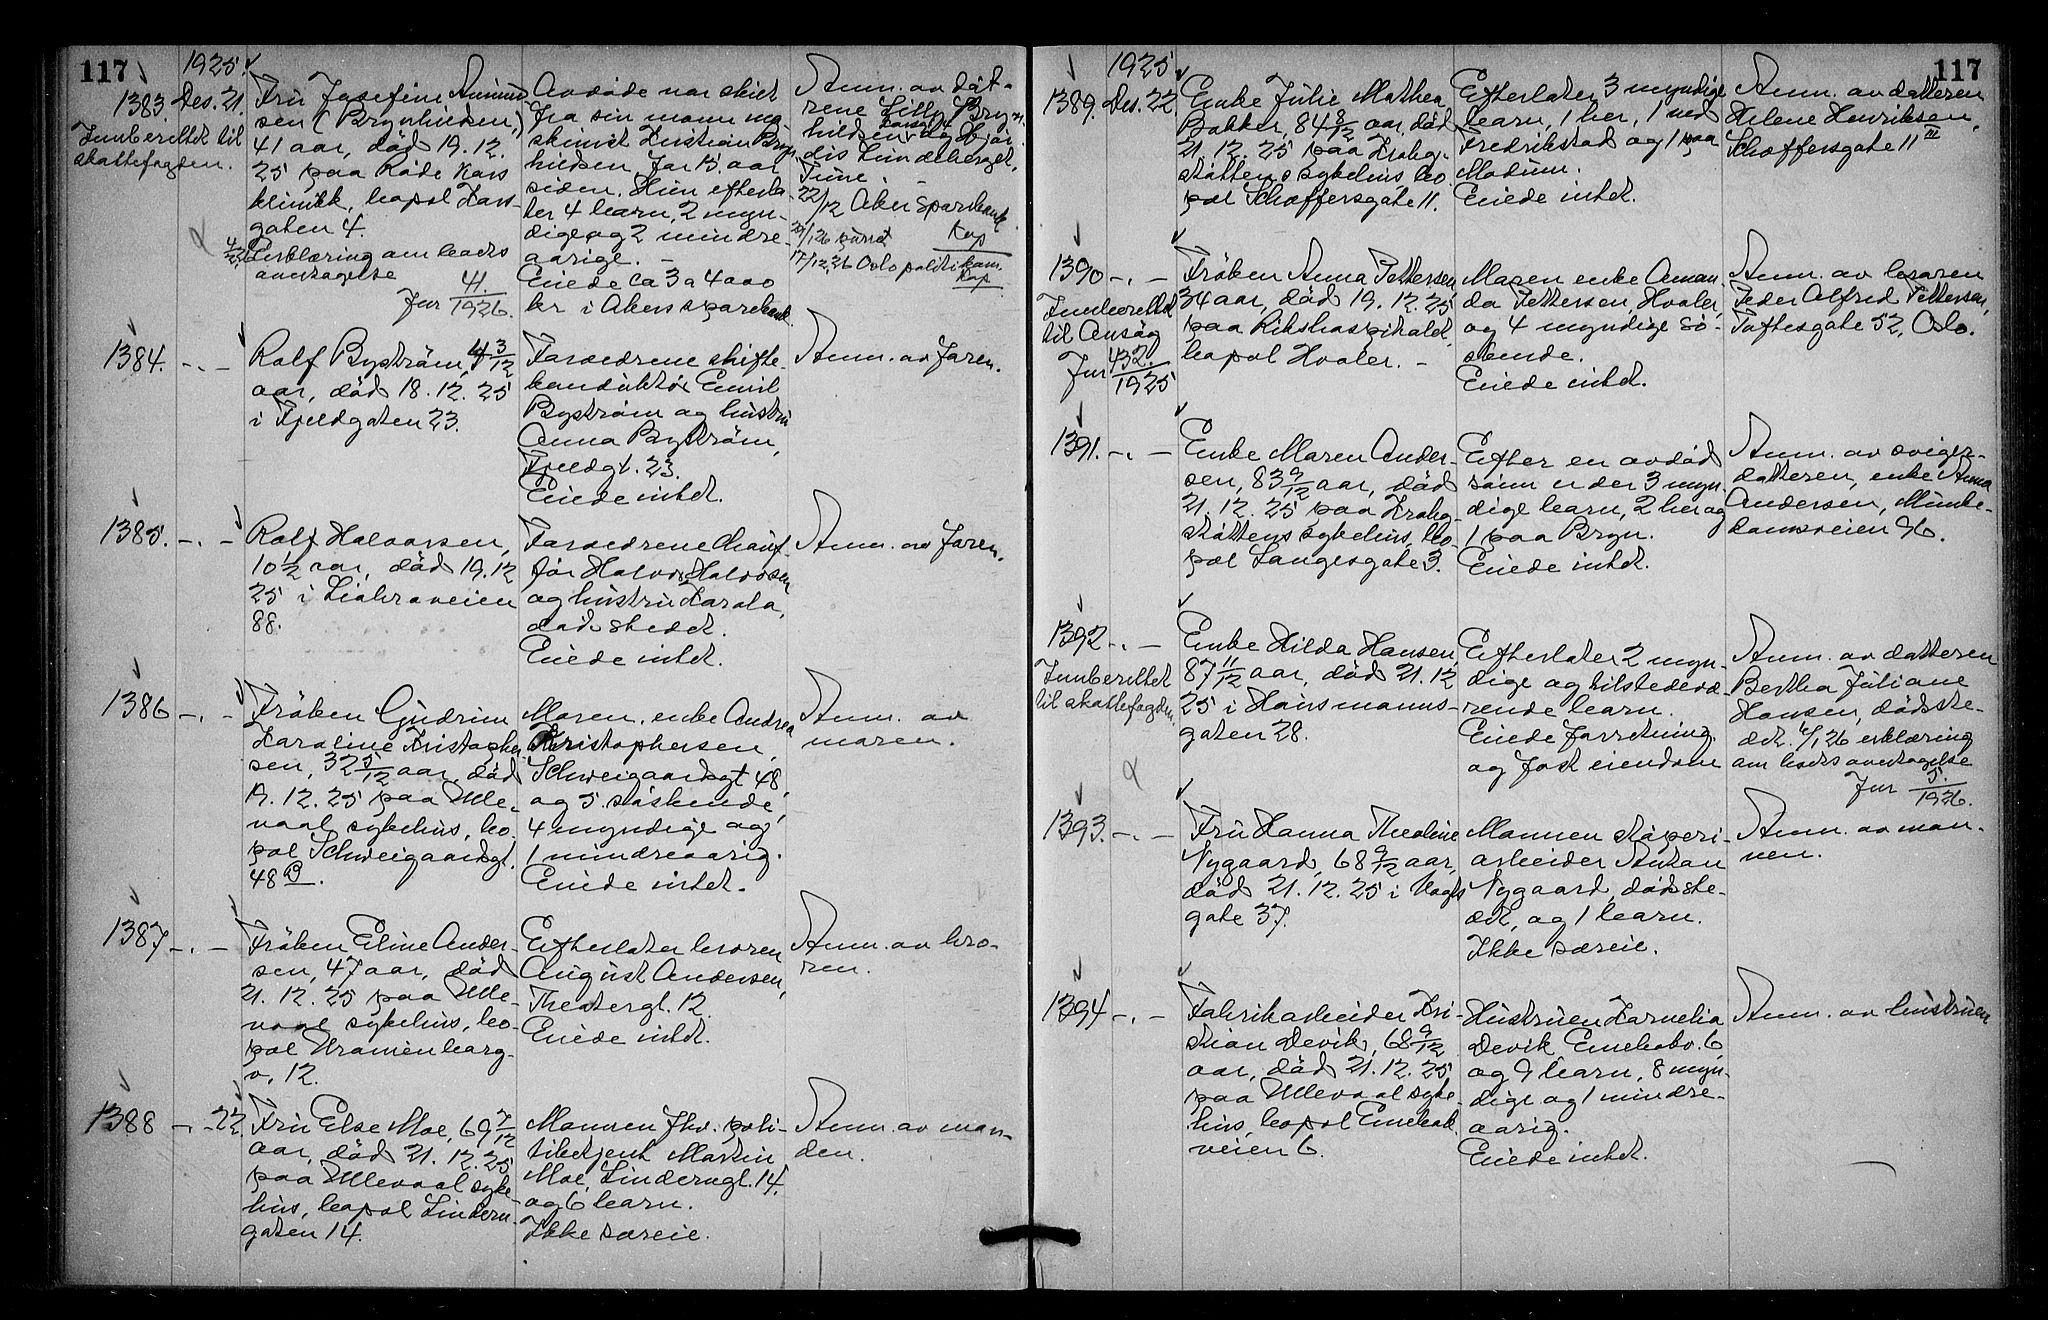 117
1925.
1383. Des. 21.
Innberettet til
skattefogden.
Fru Josefine
sen (Brynhildsen,)
41 aar, død 19.12.
25 paa Røde Kors
klinikk, bopæl
gaten 4.
Erklæring om boets
overtagelse
Jnr 41./1926.
Avdøde var skilt
fra sin mann ma-
skinist Kristian Bryn
hildsen for 15 aar
siden. Hun efterla-
ter 4 barn, 2 myn-
dige og 2 mindre-
aarige. -
Eiede ca 3 a 4000
kr i Akers sparebank.
Anm. av døt-
rene Lilly Bryn-
hildsen og Hjør-
dis
Tune. -
22/12 Aker sparebank
/1 26 purret kop
17/12.26 Oslo politikam.
kop
1384. -.-
Rolf Bystrøm, 4 3/12
aar, død 18.12.25
i Fjeldgaten 23.
Forældrene skifte-
konduktør Emil
Bystrøm og hustru
Anna Bystrøm,
Fjeldgt. 23.
Eiede intet.
Anm. av faren.
1385. -.-
Rolf Halvorsen,
10 1/2 aar, død 19.12
25 i Liabraveien
88.
Forældrene chauf-
før Halvor Halvorsen
og hustru Karola,
dødsstedet.
Eiede intet.
Anm. av faren.
1386 -.-
Frøken Gudrun
Karoline Kristopher
sen, 32 5/12 aar, død
19.12.25 paa Ulle-
vaal sykehus, bo-
pæl Schweigaardsgt.
48 B.
Moren, enke Andrea
Kristophersen,
Schweigaardsgt 48,
og 5 søskende,
4 myndige og
1 mindreaarig.
Eiede intet.
Anm. av
moren.
1387 -.-
Frøken Eline Ander-
sen, 47 aar, død
21.12.25 paa Ulle-
vaal sykehus, bo-
pæl Uranienborg-
v. 12.
Efterlater broren
August Andersen,
Theatergt. 12.
Eiede intet.
Anm. av bro-
ren.
1388 - -22.
Fru Else Moe, 69 7/12
aar, død 21.12.25
paa Ullevaal syke-
hus, bopæl Lindern-
gaten 14.
Mannen fhv. poli-
tibetjent Martin
Moe, Linderngt. 14.
og 6 barn.
Ikke særeie.
Anm. av man-
den.
117
1925
1389. Des. 22.
Enke Julie Mathea
Bakker, 84 8/12 aar, død
21.12.25 paa Krohg-
støttens sykehus, bo-
pæl Schæffersgate 11.
Efterlater 3 myndige
barn, 1 her, 1 ved
Fredrikstad og 1 paa
Modum.
Eiede intet.
Anm. av datteren
Helene Henriksen,
Schæffersgate 11 III
1390 -.-
Innberettet
til Ansøg
Jnr 432./1925
Frøken Anna Pettersen
34 aar, død 19.12.25
paa Rikshospitalet,
bopæl Hvaler. -
Moren enke Aman-
da Pettersen, Hvaler,
og 4 myndige sø-
skende.
Eiede intet.
Anm. av broren
Peder Alfred Pettersen,
Toftesgate 52, Oslo.
1391. -.-
Enke Maren Ander-
sen, 83 9/12 aar, død
21.12.25 paa Krohg-
støttens sykehus, bo-
pæl Langesgate 3.
Efter en avdød
sønn er der 3 myn-
dige barn, 2 her og
1 paa Bryn.
Eiede intet.
Anm. av sviger-
datteren, enke Anna
Andersen, Munke-
damsveien 96.
1392 -.-
Innberettet
til skattefogden
Enke Hilda Hansen,
87 11/12 aar, død 21.12
25 i Hausmanns-
gaten 28.
Efterlater 2 myn-
dige og tilstedevæ-
rende barn.
Eiede forretning
og fast eiendom
Anm. av datteren
Bertha Juliane
Hansen, dødsste-
det. 6/1 26 erklæring
om boets overtagelse
Jnr 5./1926.
1393. -.-
Fru Hanna Thealine
Nygaard, 68 9/12 aar,
død 21.12.25 i Vogts
gate 37.
Mannen støperi-
arbeider Anton
Nygaard, dødsste-
det, og 1 barn.
Ikke særeie.
Anm. av man-
nen.
1394 -.-
Fabrikarbeider Kri-
stian Devik, 68 9/12
aar, død 21.12.25
paa Ullevaal syke-
hus, bopæl Enebak
veien 6.
Hustruen Kornelia
Devik Enebakv. 6,
og 9 barn, 8 myn-
dige og 1 mindre-
aarig.
Eiede intet.
Anm. av hustruen